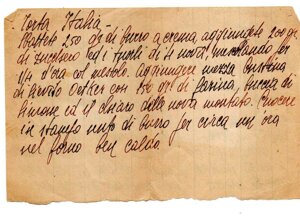 Torta Italia -
Sbattete 250 gr. di burro a crema, aggiungete 200 gr.
di zucchero ed i tuorli di 4 uova, mescolando per
1/4 d'ora col mestolo. Aggiungere mezza bustina
di lievito Oetker con 150 gr. di farina, buccia di
limone ed il chiaro delle uova montato. Cuocere
in stampo unto di burro per circa un'ora
nel forno ben caldo